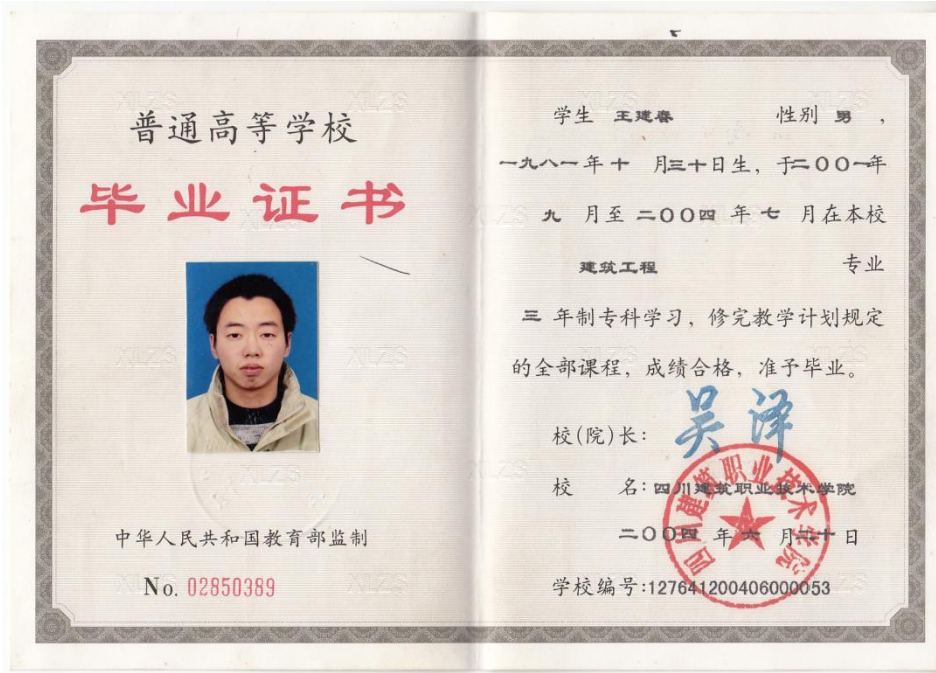 普通高等学校
毕业证书
中华人民共和国教育部监制
No. 02850389
学生 王建春 性别 男，
一九八一年十 月三十日生，于二〇〇一年
九 月至二〇〇四 年 七 月在本校
建筑工程 专业
三 年制专科学习，修完教学计划规定
的全部课程，成绩合格，准予毕业。
校(院)长： 吴泽
校 名：四川建筑职业技术学院
二〇〇四 年 六 月二十日
学校编号：127641200406000053
四川建筑职业技术学院
XLZS